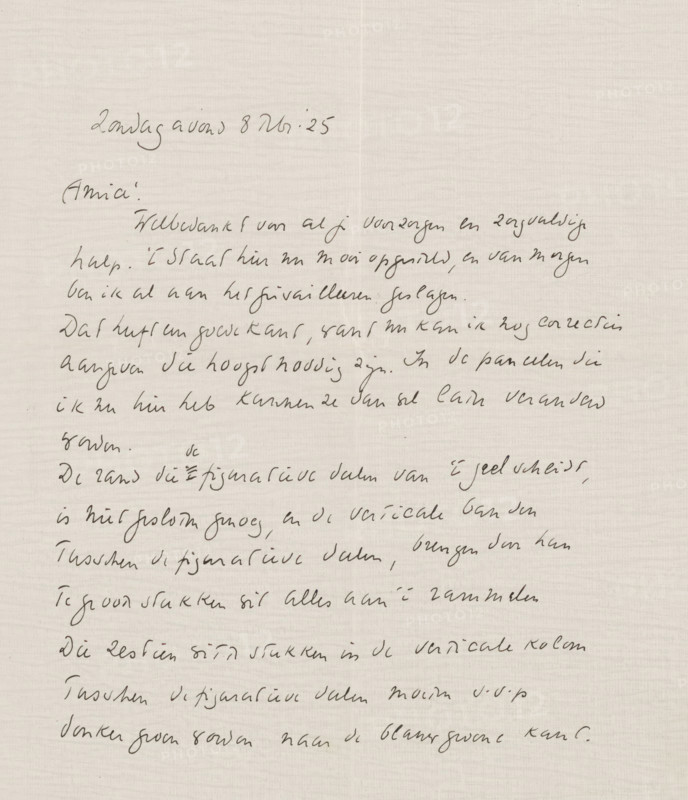 Zondag avond 8 Nbr. 25
Amice!
Welbedankt voor al je voorzorgen en zorgvuldige
hulp. 't Staat hier nu mooi opgesteld, en van morgen
ben ik al aan het geslagen.
Dat heeft een goede kant, want nu kan ik nog correcties
aangeven die hoogst noodig zijn. In de paneelen die
ik nu hier heb kunnen ze dan wel later veranderd
worden.
De rand die de figuratieve deelen van 't geel scheidt,
is niet gesloten genoeg, en de verticale banden
Tusschen de figuratieve deelen, brengen door hun
Te groote stukken wit alles aan 't rammelen
Die zestien witte stukken in de verticale kolom
Tusschen de figuratieve deelen moeten s.v.p
donker groen worden naar de blauwgroene kant.
PHOTO12